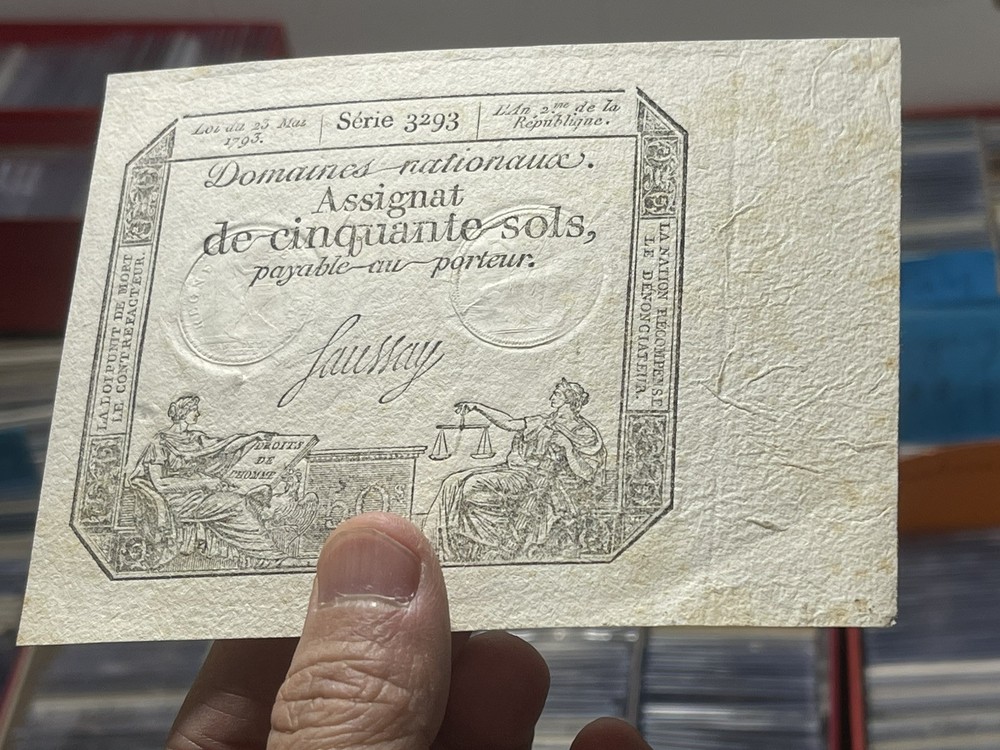 Loi du 23 Mai
1793.
Série 3293
L'An 2.me de la
République.
Domaines nationaux.
Assignat
de cinquante sols,
payable au porteur.
Saussay
LA LOI PUNIT DE MORT
LE CONTREFACTEUR.
LA NATION RÉCOMPENSE
LE DÉNONCIATEUR.
DROITS
DE
L'HOMME
50s